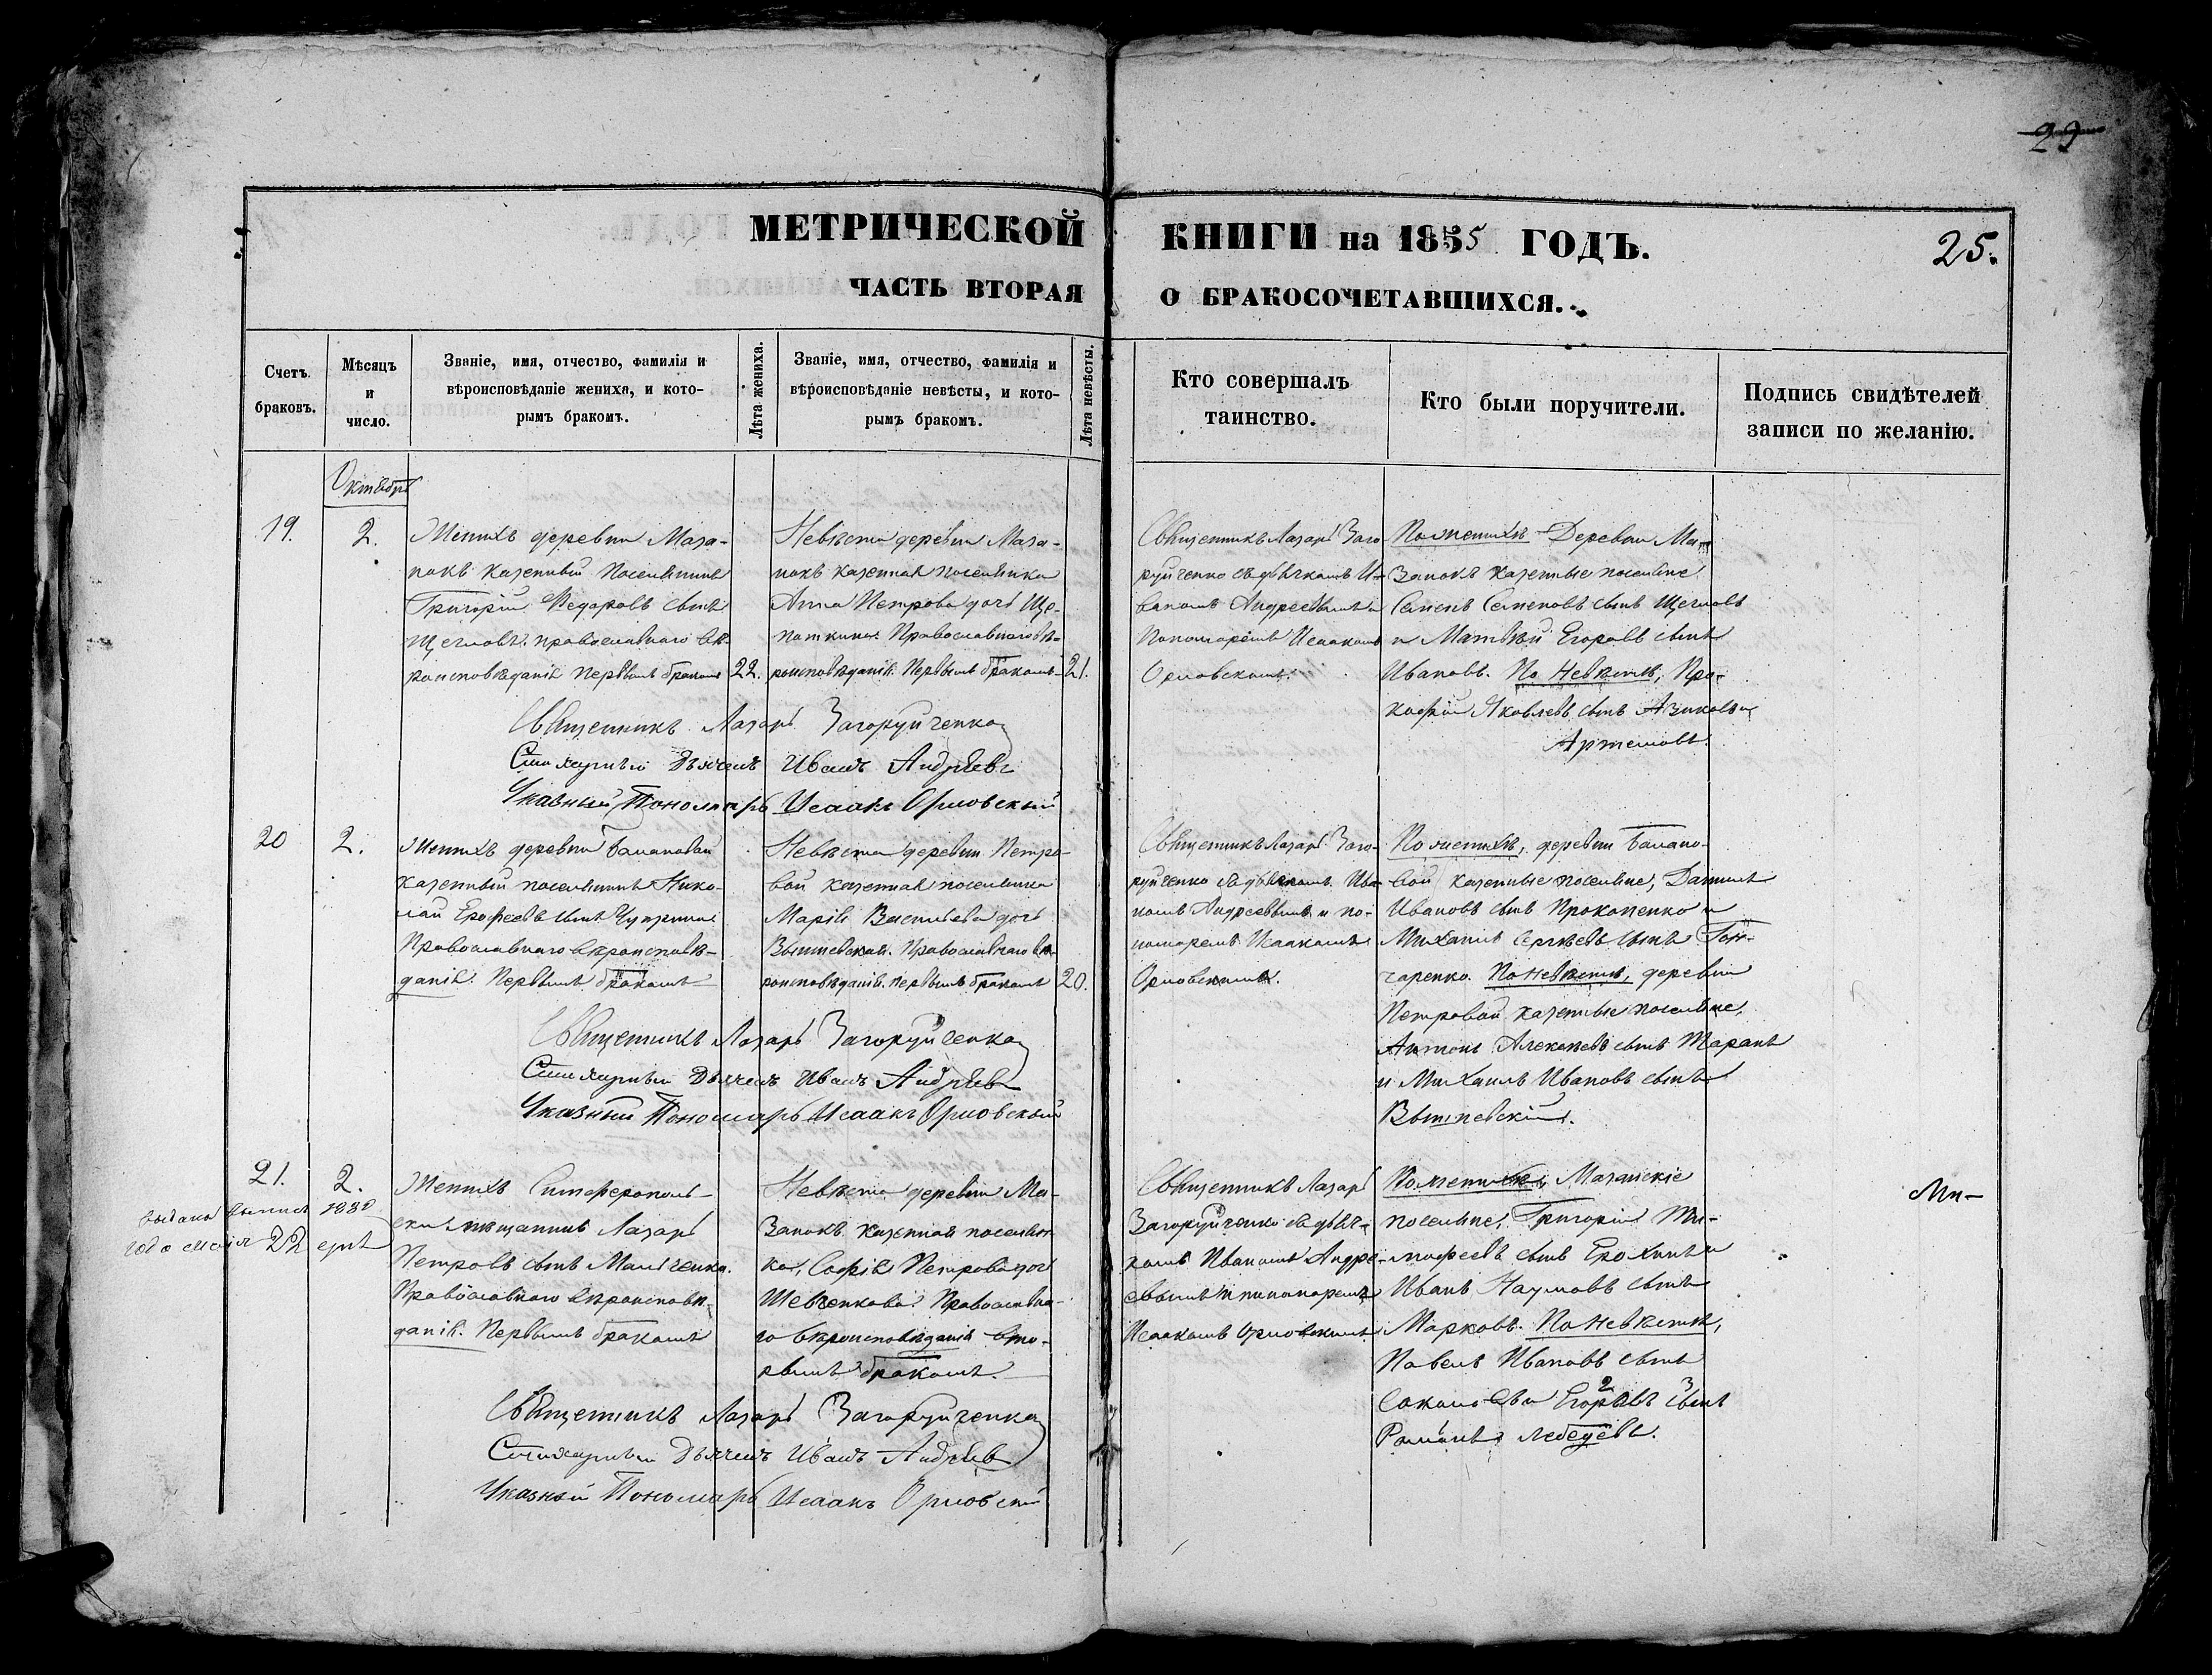 29
МЕТРИЧЕСКОЙ
КНИГИ на 1855 ГОДЪ.
25.
ЧАСТЬ ВТОРАЯ
О БРАКОСОЧЕТАВШИХСЯ.
Счетъ браковъ.
Мѣсяцъ и число.
Званіе, имя, отчество, фамилія и
вѣроисповѣданіе жениха, и кото-
рымъ бракомъ.
Лѣта жениха.
Званіе, имя, отчество, фамилія и
вѣроисповѣданіе невѣсты, и кото-
рымъ бракомъ.
Лѣта невѣсты.
Кто совершалъ
таинство.
Кто были поручители.
Подпись свидѣтелей
записи по желанію.
Октября
19.
2.
Женихъ деревни Маза-
нокъ казенный поселянинъ
Григорій Федоровъ сынъ
Щегловъ. православнаго вѣ-
роисповѣданія первымъ бракомъ
22.
Невѣста деревни Маза-
нокъ казенная поселянка
Анна Петрова дочь Ще-
поткина. Православнаго вѣ-
роисповѣданія. Первымъ бракомъ
21.
Священникъ Лазарь Заго-
руйченко съ дьячкомъ И-
ваномъ Андреевымъ и
Пономаремъ Исаакомъ
Орловскимъ.
По женихѣ Деревни Ма-
занокъ казенные поселяне
Семенъ Семеновъ сынъ Щегловъ
и Матвѣй Егоровъ сынъ
Ивановъ. По Невѣстѣ, Про-
кофій Яковлевъ сынъ
Артемовъ.
Священникъ Лазарь Загоруйченко
Стихарный Дьячекъ Иванъ Андреевъ
Указный Пономарь Исаакъ Орловскый
20
2.
Женихъ деревни Балановой
казенный поселянинъ Нико-
лай Ерофеевъ сынъ
Православнаго вѣроисповѣ-
данія. Первымъ бракомъ
Невѣста деревни Петро-
вой казенная поселянка
Марія Васильева дочь
Вышневская. Православнаго вѣ-
роисповѣданія. первымъ бракомъ
20.
Священникъ Лазарь Заго-
руйченко съ дьячкомъ Ива-
номъ Андреевымъ и по-
номаремъ Исаакомъ
Орловскимъ.
По женихѣ, деревни Балано-
вой казенные поселяне, Даниилъ
Ивановъ сынъ Прокопенко и
Михаилъ Сергѣевъ сынъ Гон-
чаренко. По невѣстѣ, деревни
Петровой казенные поселяне,
Антонъ Алексѣевъ сынъ Таранъ
и Михаилъ Ивановъ сынъ
Вышневскій.
Священникъ Лазарь Загоруйченко
Стихарный Дьячекъ Иванъ Андреевъ
Указный Пономарь Исаакъ Орловскый
21.
2.
выдана выпись 1882
года мая 22
Женихъ Симферополь-
скій мѣщанинъ Лазарь
Петровъ сынъ Мальченко.
Православнаго вѣроисповѣ-
данія. Первымъ бракомъ
Невѣста деревни Ма-
занокъ казенная поселян-
ка, Софія Петрова дочь
Шевченкова. Православна-
го вѣроисповѣданія вто-
рымъ бракомъ.
Священникъ Лазарь
Загоруйченко съ дьяч-
комъ Иваномъ Андре-
евымъ и пономаремъ
Исаакомъ Орловскимъ.
По женихѣ, Мазанскіе
поселяне, Григорій Ти-
мофеевъ сынъ Ерохинъ и
Иванъ Наумовъ сынъ
Марковъ. По невѣстѣ,
Павелъ Ивановъ сынъ
Соколовъ и Егоровъ 2 сынъ 3
Романъ Лебедевъ.
Священникъ Лазарь Загоруйченко
Стихарный Дьячекъ Иванъ Андреевъ
Указный Пономарь Исаакъ Орловскій